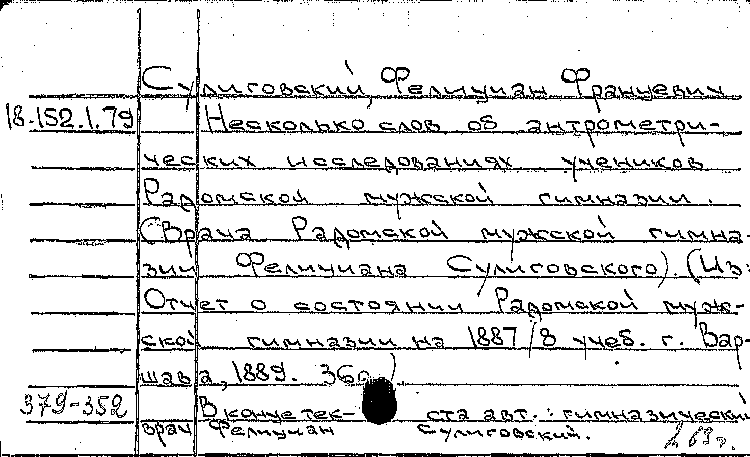 Сулиговский, Фелициан Францевич
18.152.1.79 Несколько слов об антрометри-
ческих исследованиях учеников
Радомской мужской гимназии.
(Врача Радомской мужской гимна-
зии Фелициана Сулиговского). (Из:
Отчет о состоянии Радомской муж-
ской гимназии на 1887/8 учеб. г. Вар-
шава, 1889. 36с.)
379-352 В конце тек- ста авт.: гимназический
врач Фелициан Сулиговский.